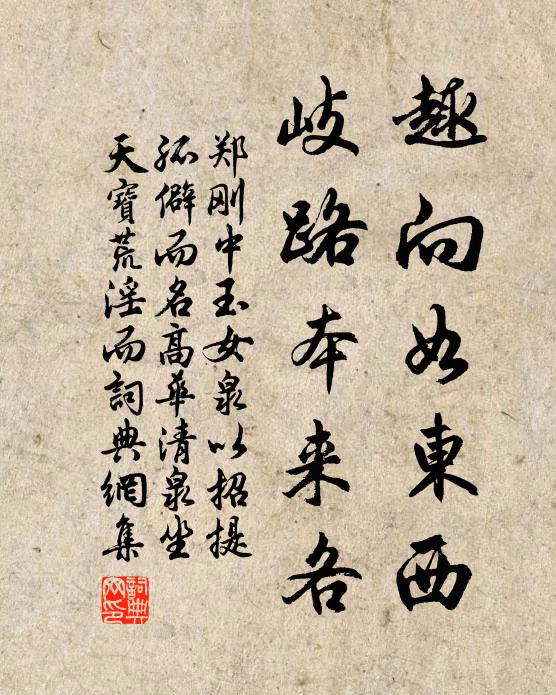 趣向如東西
歧路本来各
郑刚中玉女泉以招提
孤僻而名高華清泉坐
天寶荒淫而詞典網集
詞典網印